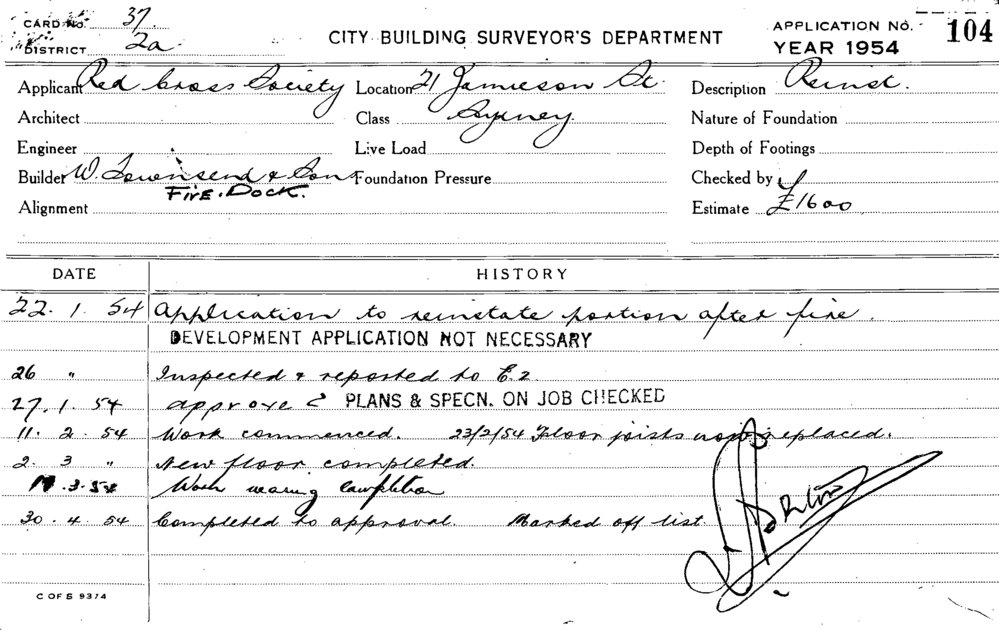 CARD NO. 37
DISTRICT 2a
CITY BUILDING SURVEYOR'S DEPARTMENT
APPLICATION NO. 104
YEAR 1954
Applicant Red Cross Society Location 21 Jamieson St. Description Reinst.
Architect Class Sydney Nature of Foundation
Engineer Live Load Depth of Footings
Builder W. Townsend & Son Foundation Pressure Checked by
FIRE. DOCK.
Alignment Estimate £1600
DATE HISTORY
22. 1. 54 Application to reinstate portion after fire.
DEVELOPMENT APPLICATION NOT NECESSARY
26 " Inspected & reported to C.2.
27. 1. 54 approved PLANS & SPECN. ON JOB CHECKED
11. 2. 54 Work commenced. 23/2/54 Floor joists replaced.
2. 3 " New floor completed.
.3.54 Work nearing completion
30. 4. 54 Completed to approval. Marked off list.
C OF S 9374